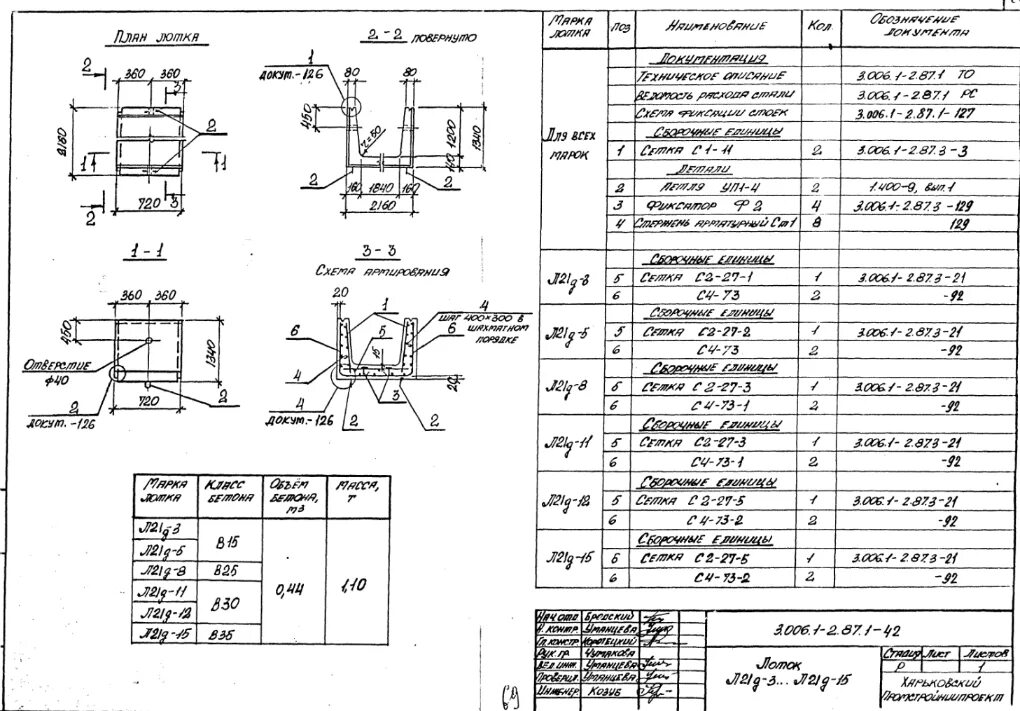 План лотка
2
360 360
3
2
2160
1 1
2
3
720
2-2 повернуто
1
докум.-126
80 80
450
r=50
1200
1340
40
2 2
160 1840 160
2160
1-1
360 360
450
1340
Отверстие
ф40
2
докум.-126
720
2
3-3
Схема армирования
20
1
4
шаг 400×300 в
шахматном
порядке
6
5
6
15
4
4
докум.-126
2
3
2
20
Марка лотка Класс бетона Объём бетона, м3 Масса, т
Л21д-3
Л21д-5 В15
Л21д-8 В25
Л21д-11
Л21д-12 В30
Л21д-15 В35
0,44 1,10
Марка лотка Поз Наименование Кол. Обозначение документа
Для всех марок
Документация
Техническое описание 3.006.1-2.87.1 ТО
Ведомость расхода стали 3.006.1-2.87.1 РС
Схема фиксации стоек 3.006.1-2.87.1-127
Сборочные единицы
1 Сетка С1-11 2 3.006.1-2.87.3-3
Детали
2 Петля УП1-4 2 1.400-9, вып.1
3 Фиксатор Ф2 4 3.006.1-2.87.3-129
4 Стержень арматурный Ст1 8 129
Сборочные единицы
Л21д-3 5 Сетка С2-27-1 1 3.006.1-2.87.3-21
6 С4-73 2 -92
Сборочные единицы
Л21д-5 5 Сетка С2-27-2 1 3.006.1-2.87.3-21
6 С4-73 2 -92
Сборочные единицы
Л21д-8 5 Сетка С2-27-3 1 3.006.1-2.87.3-21
6 С4-73-1 2 -92
Сборочные единицы
Л21д-11 5 Сетка С2-27-3 1 3.006.1-2.87.3-21
6 С4-73-1 2 -92
Сборочные единицы
Л21д-12 5 Сетка С2-27-5 1 3.006.1-2.87.3-21
6 С4-73-2 2 -92
Сборочные единицы
Л21д-15 5 Сетка С2-27-5 1 3.006.1-2.87.3-21
6 С4-73-2 2 -92
Нач.отд. Бродский
Н.контр. Уманцева
Гл.констр. Коротецкий
Рук.гр. Чумакова
Вед.инж. Уманцева
Проверил Уманцева
Инженер Козуб
3.006.1-2.87.1-42
Лоток
Л21д-3...Л21д-15
Стадия Лист Листов
Р 1
Харьковский
Промстройниипроект
69